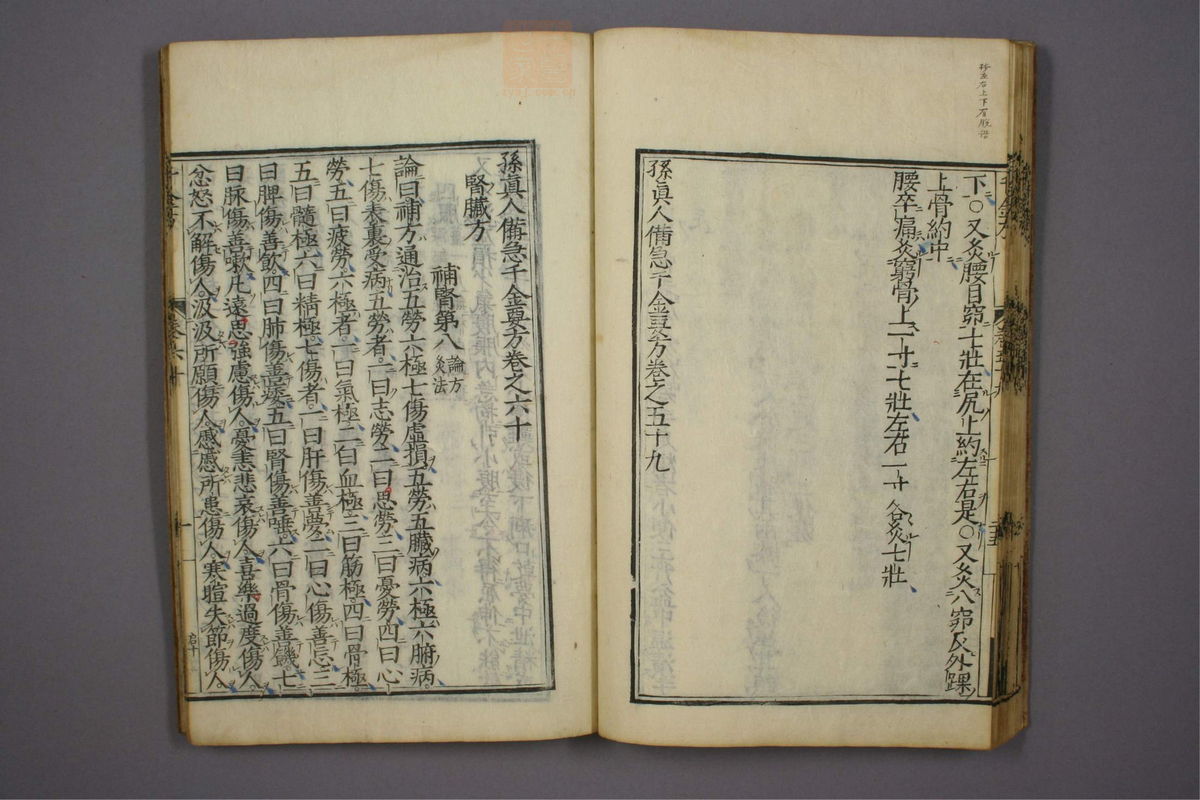 下○又灸腰目窌七壯在尻上約左右是○又灸八窌及外踝
上骨約中
腰卒痛灸窮骨上一寸七壯左右一寸各灸七壯
孫眞人備急千金要方卷之五十九
孫眞人備急千金要方卷之六十
腎臟方
補腎第八 論方
灸法
論曰補方通治五勞六極七傷虛損五勞五臟病六極六腑病
七傷表裏受病五勞者一曰志勞二曰思勞三曰憂勞四曰心
勞五曰疲勞六極者一曰氣極二曰血極三曰筋極四曰骨極
五曰髓極六曰精極七傷者一曰肝傷善夢二曰心傷善忘三
曰脾傷善飲四曰肺傷善痿五曰腎傷善唾六曰骨傷善飢七
曰脉傷善嗽凡遠思強慮傷人憂恚悲哀傷人喜樂過度傷人
忿怒不解傷人汲汲所願傷人慼慼所患傷人寒暄失節傷人